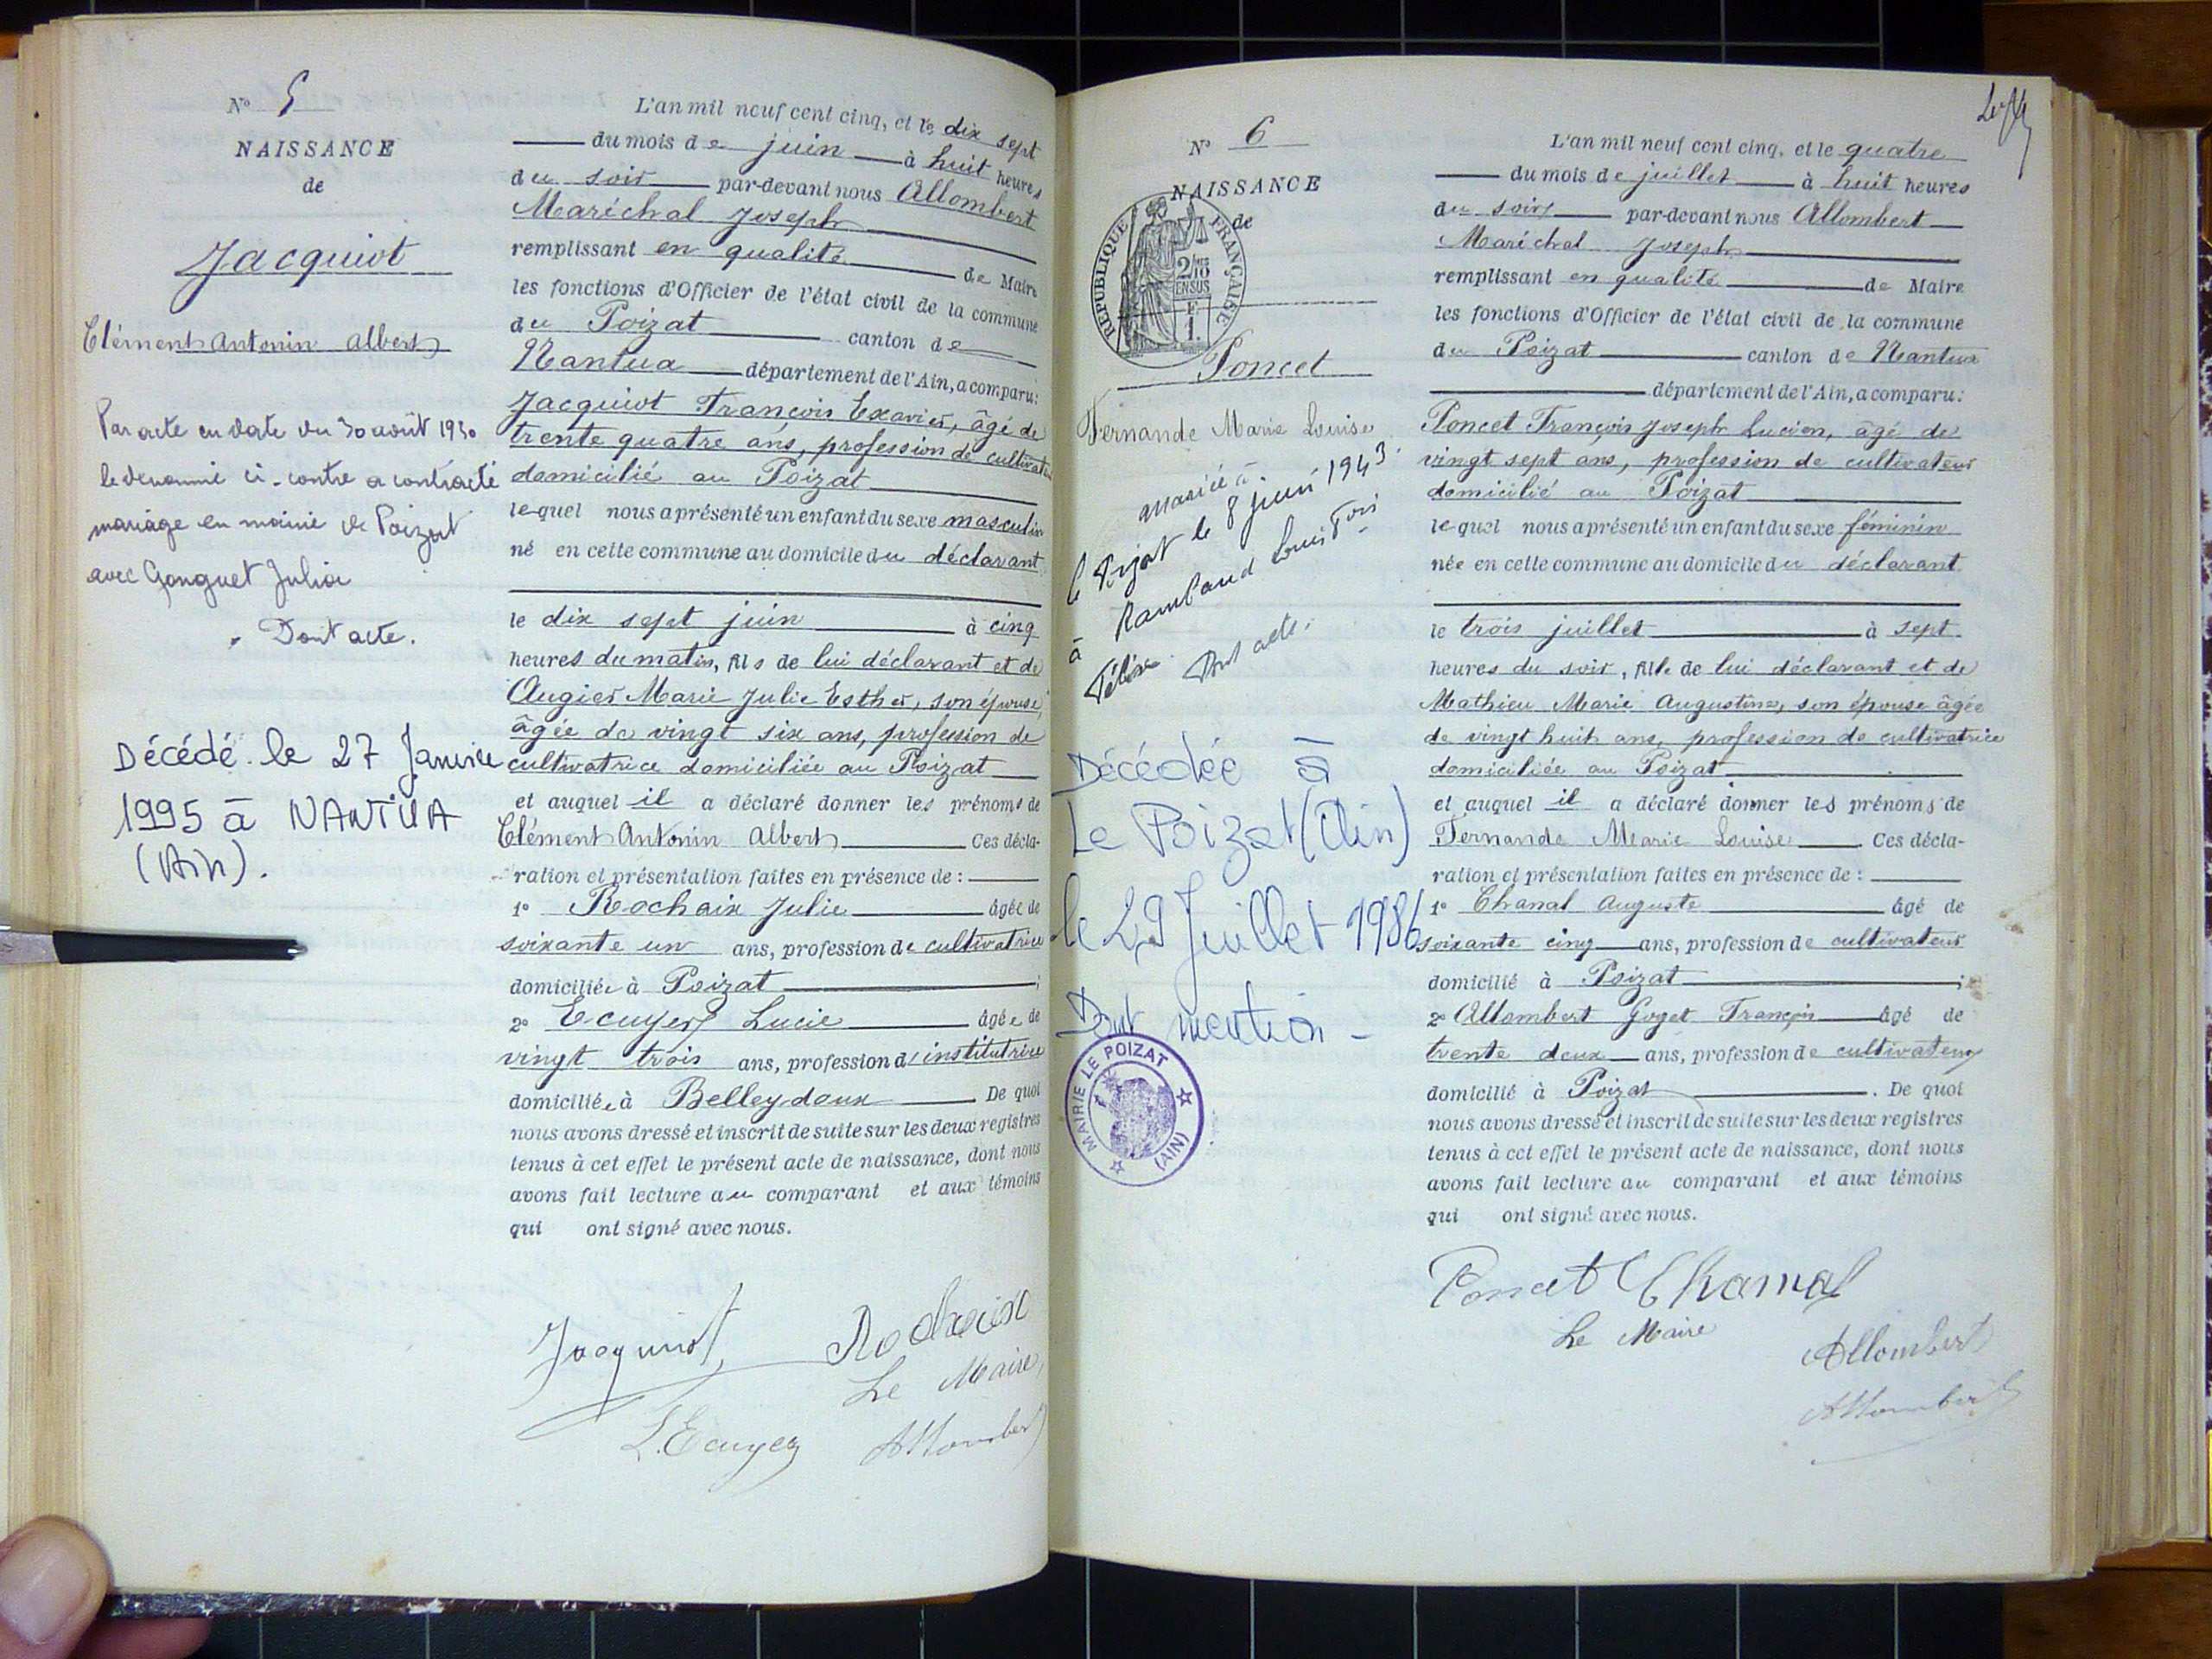 N° 5
NAISSANCE
de
Jacquiot
Clément Antonin Albert
Par acte en date du 30 août 1930
le dénommé ci-contre a contracté
mariage en mairie de Poizat
avec Gonguet Julia
Dont acte.
Décédé le 27 Janvier
1995 à NANTUA
(Ain).
L'an mil neuf cent cinq, et le dix sept
du mois de juin à huit heures
du soir par-devant nous Allombert
Maréchal Joseph
remplissant en qualité de Maire
les fonctions d'Officier de l'état civil de la commune
du Poizat canton de
Nantua département de l'Ain, a comparu:
Jacquiot François Exavier, âgé de
trente quatre ans, profession de cultivateur
domicilié au Poizat
lequel nous a présenté un enfant du sexe masculin
né en cette commune au domicile du déclarant
le dix sept juin à cinq
heures du matin, fils de lui déclarant et de
Augier Marie Julie Esther, son épouse,
âgée de vingt six ans, profession de
cultivatrice domiciliée au Poizat
et auquel il a déclaré donner les prénoms de
Clément Antonin Albert Ces décla-
ration et présentation faites en présence de :
1° Rochaix Julie âgée de
soixante un ans, profession de cultivatrice
domiciliée à Poizat ;
2° Ecuyer Lucie âgée de
vingt trois ans, profession d'institutrice
domiciliée à Belleydoux De quoi
nous avons dressé et inscrit de suite sur les deux registres
tenus à cet effet le présent acte de naissance, dont nous
avons fait lecture au comparant et aux témoins
qui ont signé avec nous.
Jacquiot Rochaix
Le Maire,
L. Ecuyer Allombert
N° 6
NAISSANCE
de
REPUBLIQUE FRANÇAISE
2/10
EN SUS
F.
1.
Poncet
Fernande Marie Louise
mariée à
le Poizat le 8 juin 1943.
à Rambaud Louis
Félix Dont acte.
Décédée à
Le Poizat (Ain)
le 29 Juillet 1986
Dont mention -
MAIRIE LE POIZAT
(AIN)
L'an mil neuf cent cinq, et le quatre
du mois de juillet à huit heures
du soir par-devant nous Allombert
Maréchal Joseph
remplissant en qualité de Maire
les fonctions d'Officier de l'état civil de la commune
du Poizat canton de Nantua
département de l'Ain, a comparu:
Poncet François Joseph Lucien, âgé de
vingt sept ans, profession de cultivateur
domicilié au Poizat
lequel nous a présenté un enfant du sexe féminin
née en cette commune au domicile du déclarant
le trois juillet à sept
heures du soir, fille de lui déclarant et de
Mathieu Marie Augustine, son épouse âgée
de vingt huit ans, profession de cultivatrice
domiciliée au Poizat
et auquel il a déclaré donner les prénoms de
Fernande Marie Louise . Ces décla-
ration et présentation faites en présence de :
1° Chanal Auguste âgé de
soixante cinq ans, profession de cultivateur
domicilié à Poizat ;
2° Allombert Goget François âgé de
trente deux ans, profession de cultivateur
domicilié à Poizat . De quoi
nous avons dressé et inscrit de suite sur les deux registres
tenus à cet effet le présent acte de naissance, dont nous
avons fait lecture au comparant et aux témoins
qui ont signé avec nous.
Poncet Chanal
Le Maire Allombert
Allombert